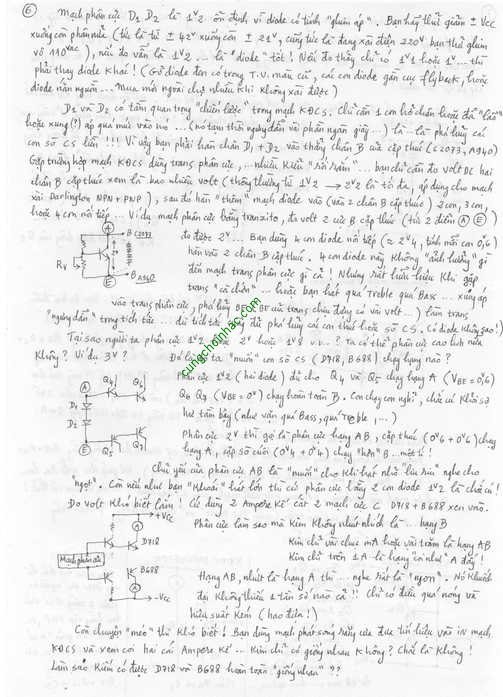 ⑥ Mạch phân cực D1 D2 là 1v2 ổn định vì diode có tính "ghim áp". Bạn hãy thử giảm ± Vcc
xuống còn phân nửa (tức là từ ± 42v xuống còn ± 21v, cũng tức là đang xài điện 220v bạn thử ghim
vô 110vac), nếu đo vẫn là 1v2 ... là "diode" tốt! Nếu đo thấy chỉ có 1v1 hoặc 1v... thì
phải thay diode khác! (Gỡ diode đen có trong T.V. màu cũ, các con diode gần cục flyback, hoặc
diode nắn nguồn ... Mua mới ngoài chợ nhiều khi không xài được)
D1 và D2 có tầm quan trọng "chiến lược" trong mạch KĐCS. Chỉ cần 1 con hở chân hoặc đã "lão"
hoặc xung (?) áp quá mức vào nó ... là phá hủy cái
con sò CS liền !!! Vì vậy bạn phải hàn chân D1 + D2 vào thẳng chân B cức cấp thúc (C2073, A940)
Gặp trường hợp mạch KĐCS dùng trans phân cực, ... nhiều kiểu "rối rắm" ... bạn chỉ cần đo volt DC hai
chân B cấp thúc xem là bao nhiêu volt (thông thường từ 1v2 → 2v2 là tối đa, áp dụng cho mạch
xài Darlington NPN + PNP), sau đó hàn "thêm" mạch diode vào (vào 2 chân B cấp thúc) 2 con, 3 con,
hoặc 4 con nối tiếp ... Ví dụ mạch phân cực bằng tranzito, đo volt 2 cực B cấp thúc (từ 2 điểm Ⓐ Ⓔ)
đo được 2v ... Bạn dùng 4 con diode nối tiếp (≈ 2v4, tính mỗi con 0,6)
hàn vào 2 chân B cấp thúc. 4 con diode này không "ảnh hưởng" gì
đến mạch trans phân cực gì cả! Nhưng rất hữu hiệu khi gặp
trans "cà chớn" ... hoặc bạn hát quá Treble quá Bass ... xung áp
Ⓐ
B C2073
RV
2v
B A940
Ⓔ
vào trans phân cực, phá hủy BE (BE cức trans chịu đựng có vài volt) làm trans
"ngưng dẫn" trong tích tắc ... đủ phá hủy cái con thúc hoặc sò CS. Có diode không sao!)
Tại sao người ta phân cực 1v2 hoặc 2v hoặc 1v8 v.v...? Ta có thể phân cực cao hơn nữa
không? Ví dụ 3v? Đó là người ta "muốn" con sò CS (D718, B688) chạy hạng nào?
Ⓐ
D1
D2
Ⓔ
Q4
Q6
Q5
Q7
Phân cực 1v2 (hai diode) đủ cho Q4 và Q5 chạy hạng A (VBE = 0v6)
Q6 Q7 (VBE = 0v) chạy hoàn toàn B. Con chạy con nghỉ, chắc cú khỏi sợ
hư tầm bậy (như vặn quá Bass, quá Treble, ...)
Phân cực 2v thì gọi là phân cực hạng AB, cấp thúc (0v6 + 0v6) chạy
hạng A, cặp sò cuối (0v4 + 0v4) chạy "hẳn" B ... một tí!
Chủ yếu của phân cực AB là "muốn" cho khi hát nhỏ "liu riu" nghe cho
"ngọt". Còn nếu như bạn "khoái" hát lớn thì cứ phân cực bằng 2 con diode 1v2 là chắc cú!
Đo volt khó biết lắm! Cứ dùng 2 Ampere kế cắt 2 mạch cức C D718 + B688 xen vào.
+Vcc
Ⓐ
D718
Mạch phân cực
B688
Ⓐ
-Vcc
Phân cực làm sao mà kim không nhúc nhích là ... hạng B
Kim chỉ vài chục mA hoặc vài trăm là hạng AB
Kim chỉ trên 1A là hạng "coi như" A đấy!
Hạng AB, nhứt là hạng A thì ... nghe rất là "ngon". Nó khuếch
đại không thiếu 1 tần số nào cả !! Chỉ có điều quá nóng và
hiệu suất kém (hao điện!)
Còn chuyện "méo" thì khó biết! Bạn dùng mạch phát sóng răng cưa đưa tín hiệu vào in mạch
KĐCS và xem coi hai cái Ampere kế ... kim chỉ có giống nhau không? Chắc là không!
Làm sao kiếm có được D718 và B688 hoàn toàn "giống nhau" ??
cungchoinhac.com